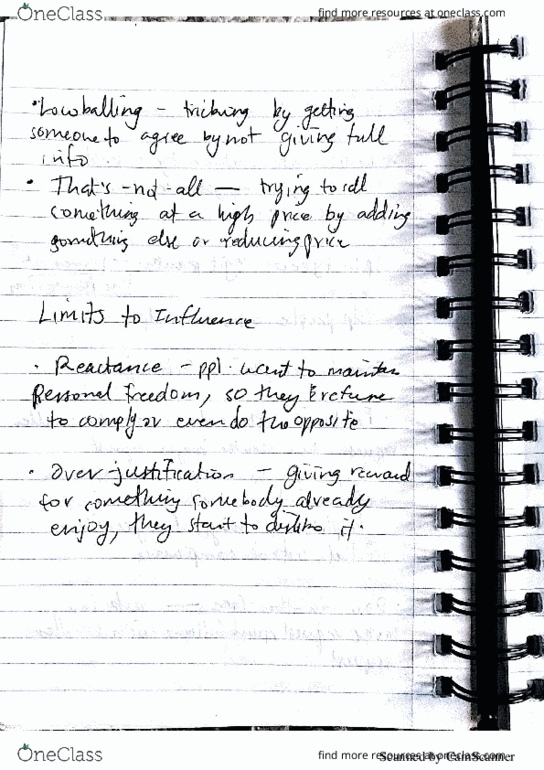 OneClass
find more resources at oneclass.com
• Lowballing – tricking by getting
someone to agree by not giving full
info
• That's-not-all — trying to sell
something at a high price by adding
something else or reducing price
Limits to Influence
• Reactance – ppl. want to maintain
personal freedom, so they refuse
to comply or even do the opposite
• Over justification – giving reward
for something somebody already
enjoy, they start to dislike it.
OneClass
find more resources at oneclass.com
Scanned by CamScanner